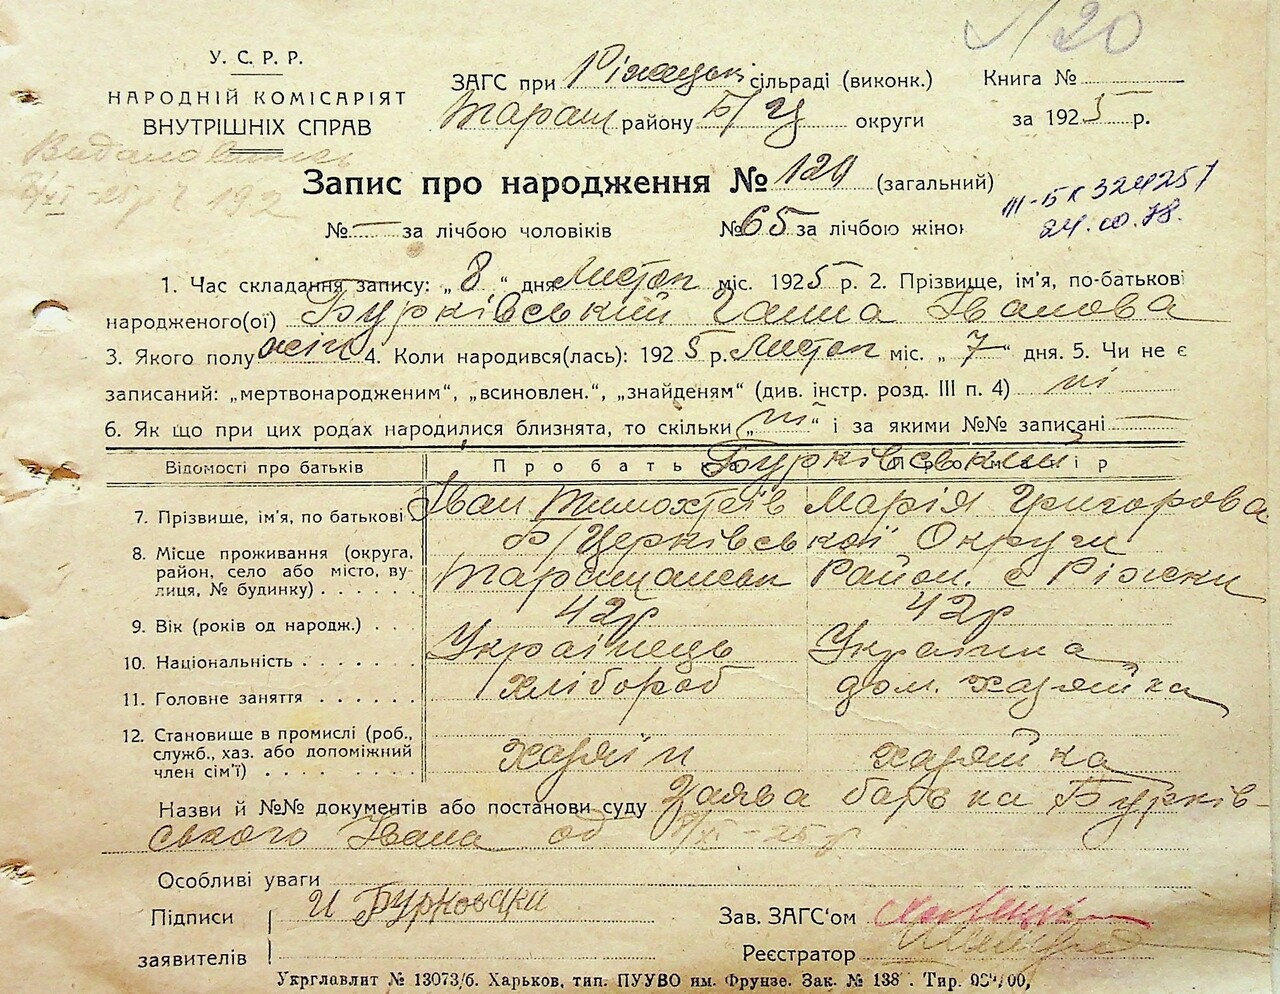 20
У. С. Р. Р.
НАРОДНІЙ КОМІСАРІЯТ
ВНУТРІШНІХ СПРАВ
ЗАГС при Ріжецьк сільраді (виконк.)
Таращ району Б/Ц округи
Книга №
за 1925 р.
Запис про народження № 120 (загальний)
№ — за лічбою чоловіків № 65 за лічбою жінок
III-БК 324257
24.10.78.
1. Час складання запису: „8“ дня Листоп міс. 1925 р. 2. Прізвище, ім'я, по-батькові
народженого(ої) Бурківський Ганна Іванова
3. Якого полу жін 4. Коли народився(лась): 1925 р. Листоп міс. „7“ дня. 5. Чи не є
записаний: „мертвонародженим“, „всиновлен.“, „знайденям“ (див. інстр. розд. III п. 4) ні
6. Як що при цих родах народилися близнята, то скільки „ні“ і за якими №№ записані
Відомості про батьків Про батька Про матір
Бурківський
7. Прізвище, ім'я, по батькові Іван Тимохтеів Марія Григорова
8. Місце проживання (округа, Б/Церківської Округи
район, село або місто, ву- Таращанськ Район. с Ріжки
лиця, № будинку)
9. Вік (років од народж.) 42р 42р
10. Національність Українець Українка
11. Головне заняття хлібороб дом. хазяйка
12. Становище в промислі (роб.,
служб., хаз. або допоміжний хазяїн хазяйка
член сім'ї)
Назви й №№ документів або постанови суду Заява батька Бурків-
ського Івана од 8/XI-25р
Особливі уваги
Підписи И Бурковски Зав. ЗАГС'ом
заявителів Реєстратор
Укрглавліт № 13073/б. Харьков, тип. ПУУВО им. Фрунзе. Зак. № 138 . Тир.